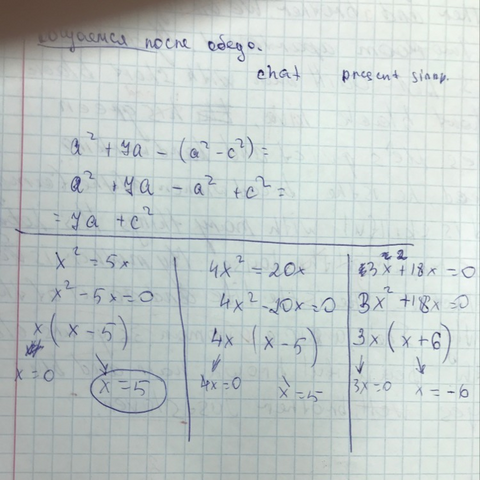 общаемся после обедо.
chat present simp.
a² + 7a - (a² - c²) =
a² + 7a - a² + c² =
= 7a + c²
x² = 5x
x² - 5x = 0
x(x - 5)
x = 0 x = 5
4x² = 20x
4x² - 20x = 0
4x(x - 5)
4x = 0 x = 5
3x² + 18x = 0
3x² + 18x = 0
3x(x + 6)
3x = 0 x = -6